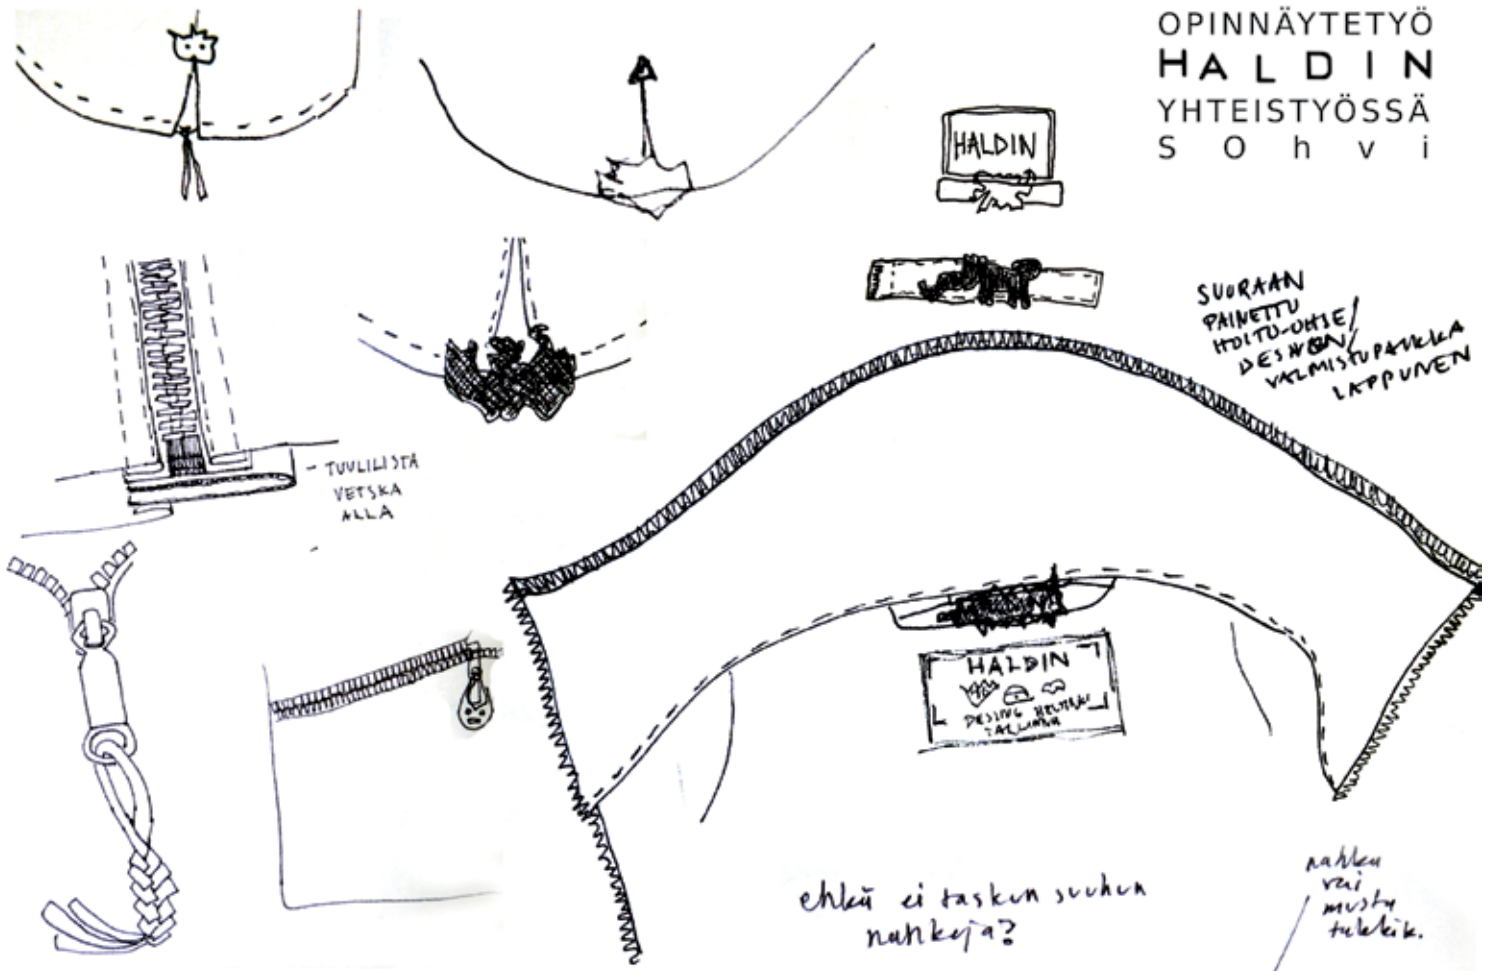 OPINNÄYTETYÖ
HALDIN
YHTEISTYÖSSÄ
SOhvi
HALDIN
SUORAAN
PAINETTU
HOITO-OHJE/
DESIGN/
VALMISTUPAIKKA
LAPPUNEN
- TUULILISTA
VETSKA
ALLA
HALDIN
DESING HELSINKI
TALLINNA
ehkä ei taskun suuhun
nahkoja?
nahka
vai
musta